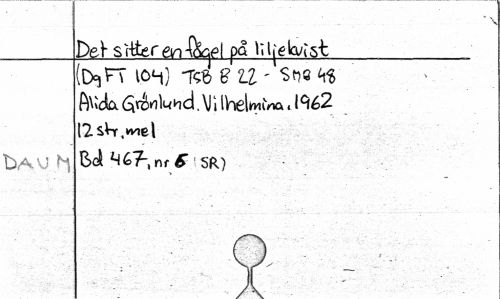 Det sitter en fågel på liljekvist
(DgFT 104) TSB B 22 - SMB 48
Alida Grönlund. Vilhelmina. 1962
12 str, mel
DAUM Bd 467, nr 6 (SR)